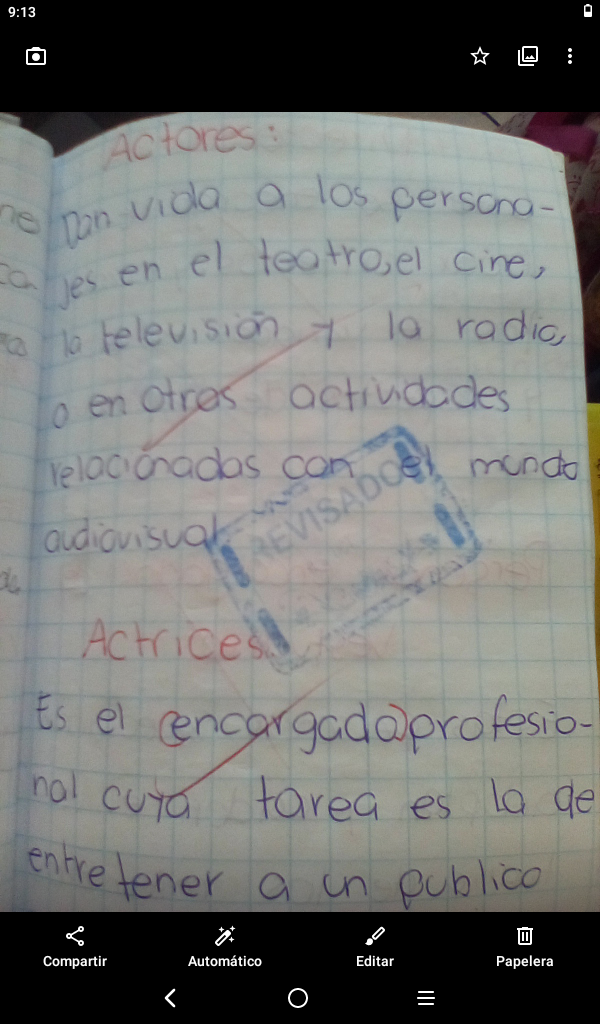 9:13
Actores:
Dan vida a los persona-
jes en el teatro, el cine,
la televisión y la radio,
o en otras actividades
relacionadas con el mundo
audiovisual
REVISADO
Actrices
Es el (encargado) profesio-
nal cuya tarea es la de
entretener a un publico
Compartir
Automático
Editar
Papelera